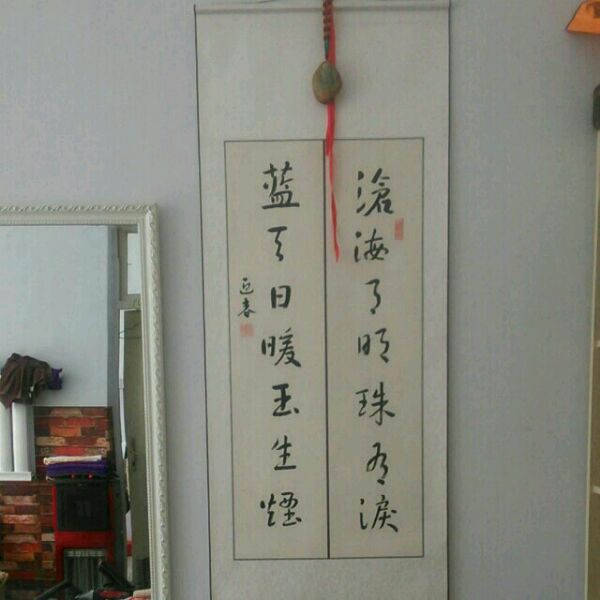 滄海月明珠有淚
藍田日暖玉生煙
迎春